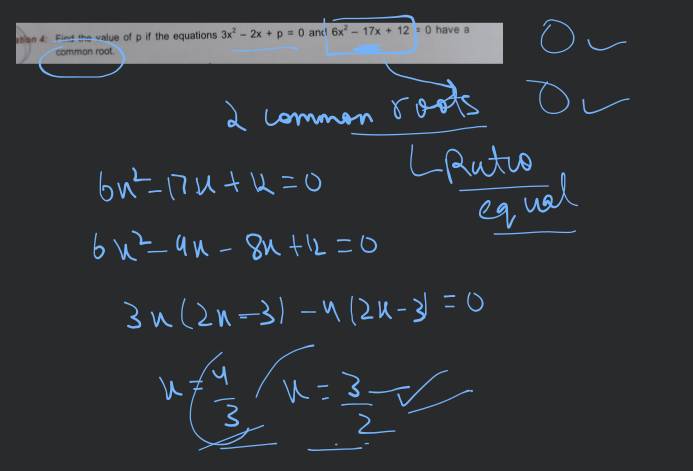 Find the value of p if the equations 3x² – 2x + p = 0 and 6x² – 17x + 12 = 0 have a
common root.
2 common roots
Ratio
equal
6x²-17x+12=0
6x²-9x-8x+12=0
3x(2x-3)-4(2x-3)=0
x=4/3 x=3/2